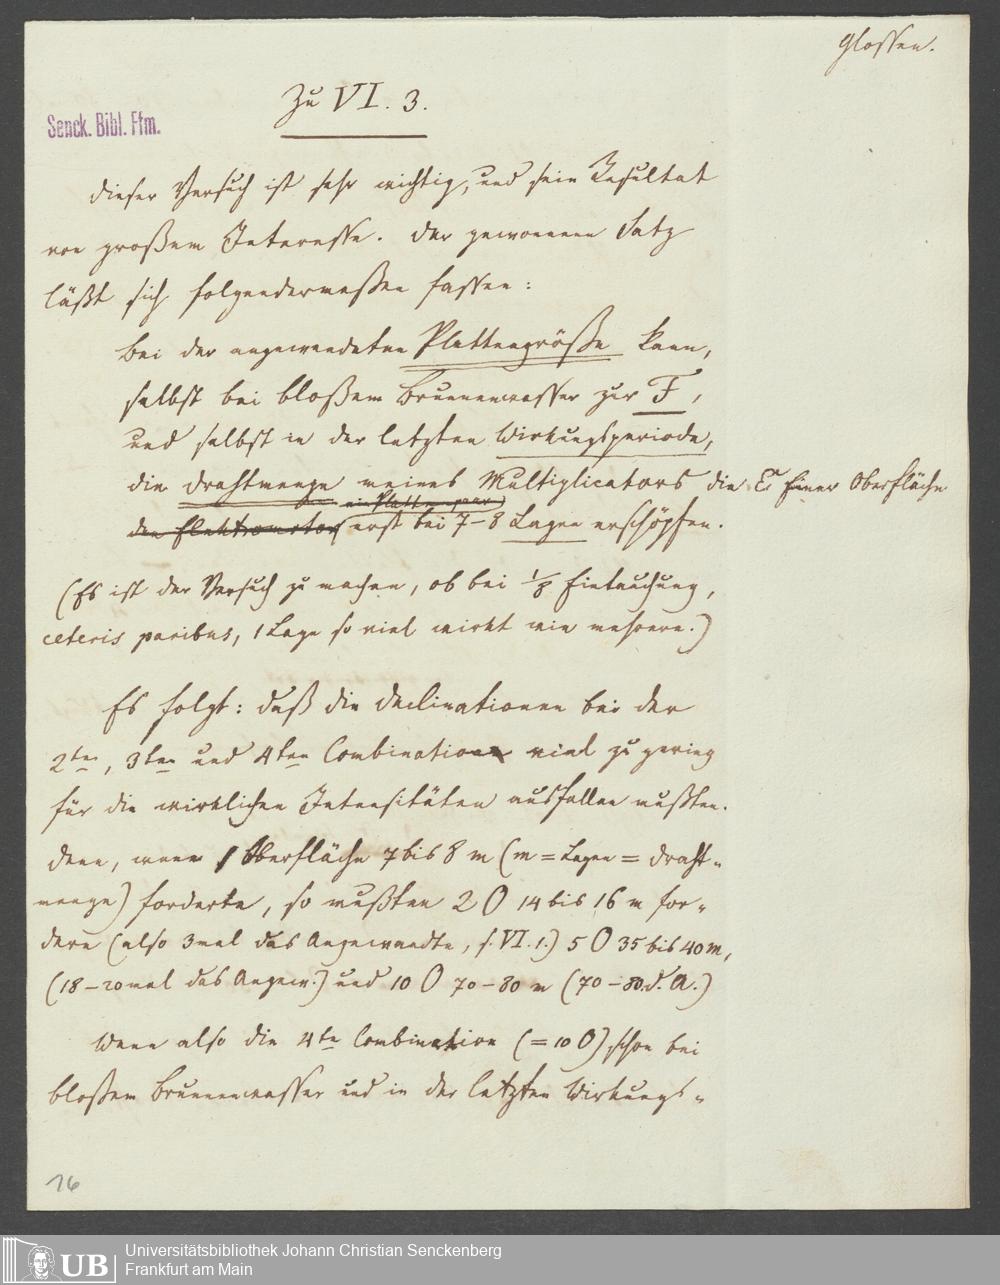 Glossen.
Zu VI. 3.
Senck. Bibl. Ffm.
Dieser Versuch ist sehr wichtig, und sein Resultat
von großem Interesse. Der gewonnene Satz
läßt sich folgendermaßen fassen:
Bei der angewendeten Plattengröße kann,
selbst bei bloßem Brunnenwasser zur F,
und selbst in der letzten Wirkungsperiode,
die Drahtmenge meines Multiplicators die E einer Oberfläche
ein Plattenpaar
den Elektromotor erst bei 7–8 Lagen erschöpfen.
(Es ist der Versuch zu machen, ob bei 1/8 Eintauchung,
ceteris paribus, 1 Lage so viel wirkt wie mehrere.)
Es folgt: daß die Declinationen bei der
2ten, 3ten und 4ten Combination viel zu gering
für die wirklichen Intensitäten ausfallen mußten.
Denn, wenn 1 Oberfläche 7 bis 8 m (m = Lagen = Draht-
menge) forderte, so mußten 2 O 14 bis 16 m for-
dern (also 3mal das Angewandte, s. VI. 1.) 5 O 35 bis 40 m,
(18–20mal das Angew.) und 10 O 70–80 m (70–80. d. A.)
Wenn also die 4te Combination (= 10 O) schon bei
bloßem Brunnenwasser und in der letzten Wirkungs-
16
UB
Universitätsbibliothek Johann Christian Senckenberg
Frankfurt am Main